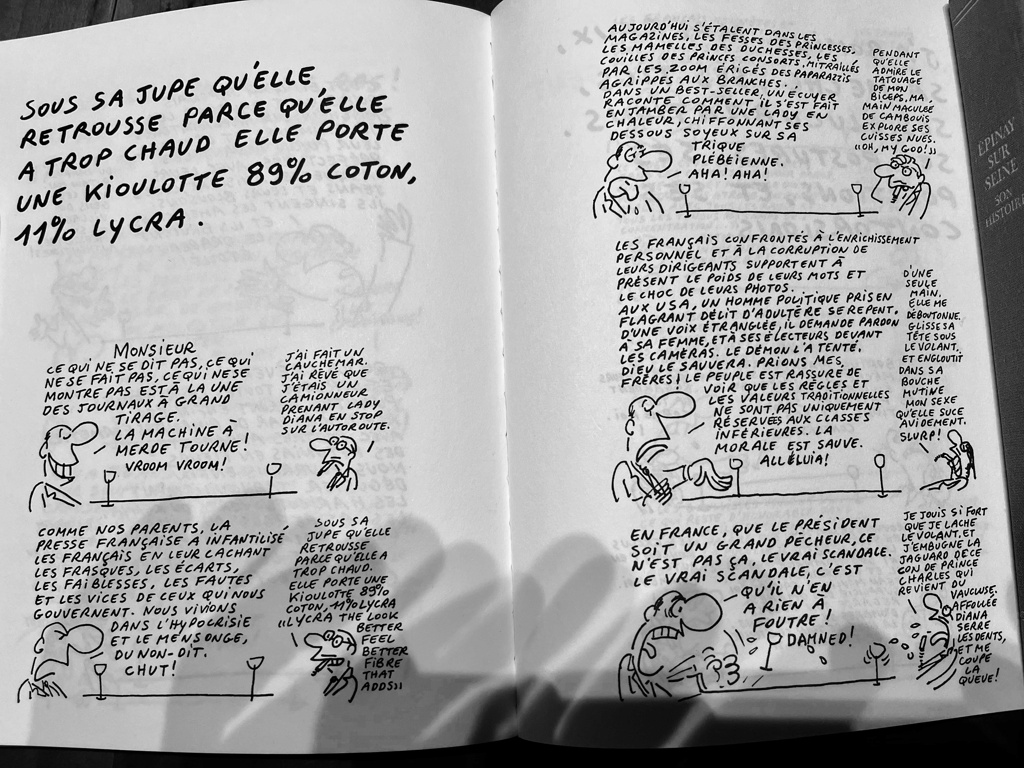 SOUS SA JUPE QU'ELLE
RETROUSSE PARCE QU'ELLE
A TROP CHAUD ELLE PORTE
UNE KIOULOTTE 89% COTON,
11% LYCRA.
MONSIEUR
CE QUI NE SE DIT PAS, CE QUI
NE SE FAIT PAS, CE QUI NE SE
MONTRE PAS EST À LA UNE
DES JOURNAUX À GRAND
TIRAGE.
LA MACHINE À
MERDE TOURNE!
VROOM VROOM!
J'AI FAIT UN
CAUCHEMAR.
J'AI RÊVÉ QUE
J'ÉTAIS UN
CAMIONNEUR
PRENANT LADY
DIANA EN STOP
SUR L'AUTOROUTE.
COMME NOS PARENTS, LA
PRESSE FRANÇAISE A INFANTILISÉ
LES FRANÇAIS EN LEUR CACHANT
LES FRASQUES, LES ÉCARTS,
LES FAIBLESSES, LES FAUTES
ET LES VICES DE CEUX QUI NOUS
GOUVERNENT. NOUS VIVIONS
DANS L'HYPOCRISIE
ET LE MENSONGE,
DU NON-DIT.
CHUT!
SOUS SA
JUPE QU'ELLE
RETROUSSE
PARCE QU'ELLE A
TROP CHAUD.
ELLE PORTE UNE
KIOULOTTE 89%
COTON, 11% LYCRA
"LYCRA THE LOOK
BETTER
FEEL
BETTER
FIBRE
THAT
ADDS"
AUJOURD'HUI S'ÉTALENT DANS LES
MAGAZINES, LES FESSES DES PRINCESSES,
LES MAMELLES DES DUCHESSES, LES
COUILLES DES PRINCES CONSORTS, MITRAILLÉS
PAR LES ZOOM ÉRIGÉS DES PAPARAZZIS
AGRIPPÉS AUX BRANCHES.
DANS UN BEST-SELLER, UN ÉCUYER
RACONTE COMMENT IL S'EST FAIT
ENJAMBER PAR UNE LADY EN
CHALEUR, CHIFFONNANT SES
DESSOUS SOYEUX SUR SA
TRIQUE
PLÉBÉIENNE.
AHA! AHA!
PENDANT
QU'ELLE
ADMIRE LE
TATOUAGE
DE MON
BICEPS, MA
MAIN MACULÉE
DE CAMBOUIS
EXPLORE SES
CUISSES NUES.
"OH, MY GOD!"
LES FRANÇAIS CONFRONTÉS À L'ENRICHISSEMENT
PERSONNEL ET À LA CORRUPTION DE
LEURS DIRIGEANTS SUPPORTENT À
PRÉSENT LE POIDS DE LEURS MOTS ET
LE CHOC DE LEURS PHOTOS.
AUX USA, UN HOMME POLITIQUE PRIS EN
FLAGRANT DÉLIT D'ADULTÈRE SE REPENT.
D'UNE VOIX ÉTRANGLÉE, IL DEMANDE PARDON
À SA FEMME, ET À SES ÉLECTEURS DEVANT
LES CAMÉRAS. LE DÉMON L'A TENTÉ.
DIEU LE SAUVERA. PRIONS MES
FRÈRES! LE PEUPLE EST RASSURÉ DE
VOIR QUE LES RÈGLES ET
LES VALEURS TRADITIONNELLES
NE SONT PAS UNIQUEMENT
RÉSERVÉES AUX CLASSES
INFÉRIEURES. LA
MORALE EST SAUVE.
ALLÉLUIA!
D'UNE
SEULE
MAIN.
ELLE ME
DÉBOUTONNE.
GLISSE SA
TÊTE SOUS
LE VOLANT,
ET ENGLOUTIT
DANS SA
BOUCHE
MUTINE
MON SEXE
QU'ELLE SUCE
AVIDEMENT.
SLURP!
EN FRANCE, QUE LE PRÉSIDENT
SOIT UN GRAND PÉCHEUR, CE
N'EST PAS ÇA, LE VRAI SCANDALE.
LE VRAI SCANDALE, C'EST
QU'IL N'EN
A RIEN À
FOUTRE!
DAMNED!
JE JOUIS SI FORT
QUE JE LÂCHE
LE VOLANT, ET
J'EMBUGNE LA
JAGUARD DE CE
CON DE PRINCE
CHARLES QUI
REVIENT DU
VAUCLUSE.
AFFOLÉE
DIANA
SERRE
LES DENTS,
ET ME
COUPE
LA
QUEUE!
EPINAY
SUR
SEINE
SON
HISTOIRE